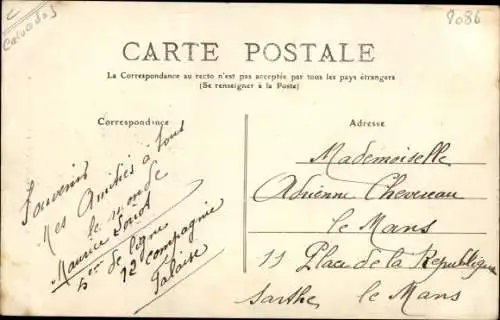 C
Calvados
8086
CARTE POSTALE
La Correspondance au recto n'est pas acceptée par tous les pays étrangers
(Se renseigner à la Poste)
Correspondance
Adresse
Souvenir
Mes Amitiés à tout
le monde
Maurice
5me de ligne
12 compagnie
Falaise
Mademoiselle
Adrienne Chevereau
le Mans
11 Place de la République
Sarthe le Mans